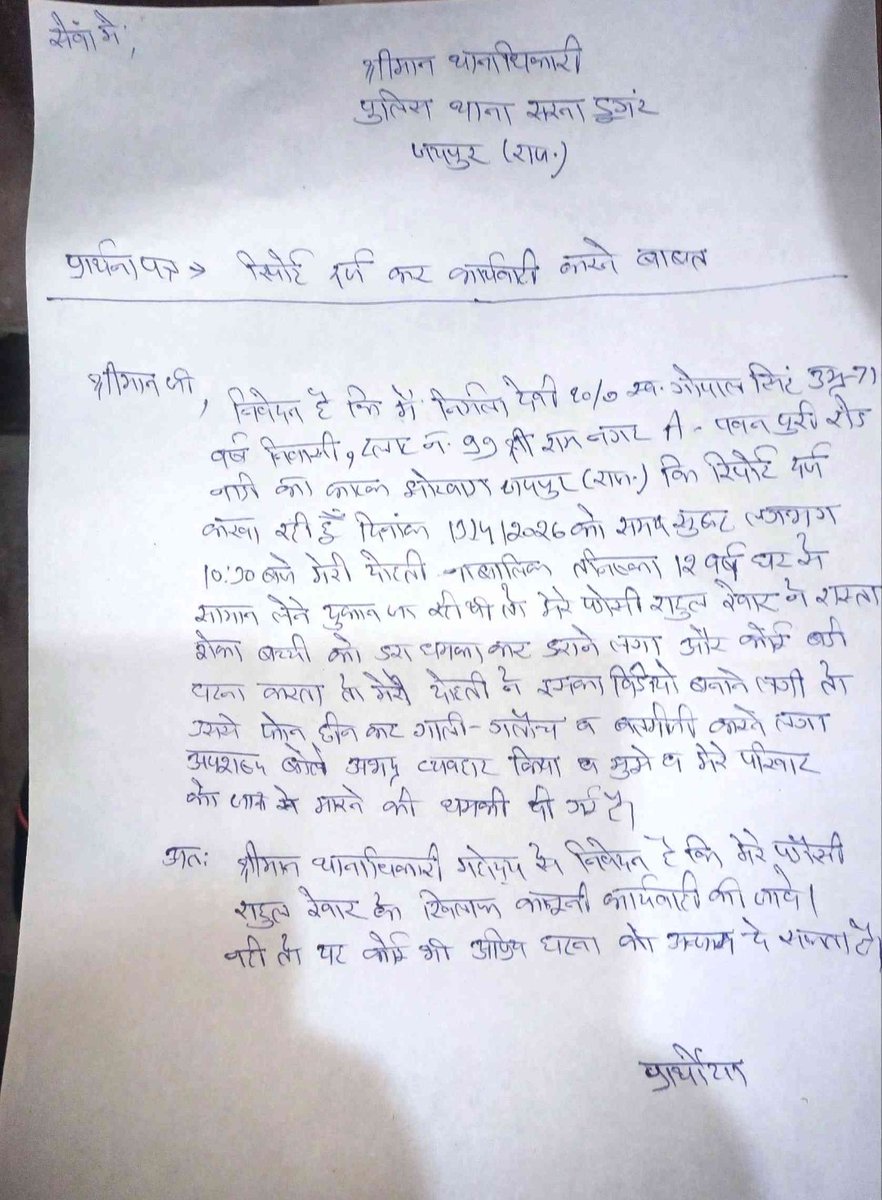 सेवा में,
श्रीमान थानाधिकारी
पुलिस थाना सरना डुगंर
जयपुर (राज.)
प्रार्थना पत्र → रिपोर्ट दर्ज कर कार्यवाही करने बाबत
श्रीमान जी,
निवेदन है कि मैं निर्मला देवी w/o स्व. गोपाल सिंह उम्र-71
वर्ष निवासी, प्लाट न. 99 श्री राम नगर A - पवन पुरी रोड
जयपुर (राज.) कि रिपोर्ट दर्ज
करवा रही हूँ दिनांक 19/4/2026 को समय सुबह लगभग
10:30 बजे मेरी पोती नाबालिक 12 वर्ष घर से
सामान लेने दुकान जा रही थी तो मेरे पड़ोसी राहुल रेवार ने रास्ता
रोका बच्ची को डरा धमका कर डराने लगा और कोई बड़ी
घटना करता तो मेरी पोती ने इसका विडियो बनाने लगी तो
उससे फोन छीन कर गाली-गलौच व बत्तमीजी करने लगा
अपशब्द बोले अभद्र व्यवहार किया व मुझे व मेरे परिवार
को जान से मारने की धमकी दी गई है।
अतः श्रीमान थानाधिकारी महोदय से निवेदन है कि मेरे पड़ौसी
राहुल रेवार के खिलाफ कानूनी कार्यवाही की जावे।
नही तो यह कोई भी अप्रिय घटना को अन्जाम दे सकता है।